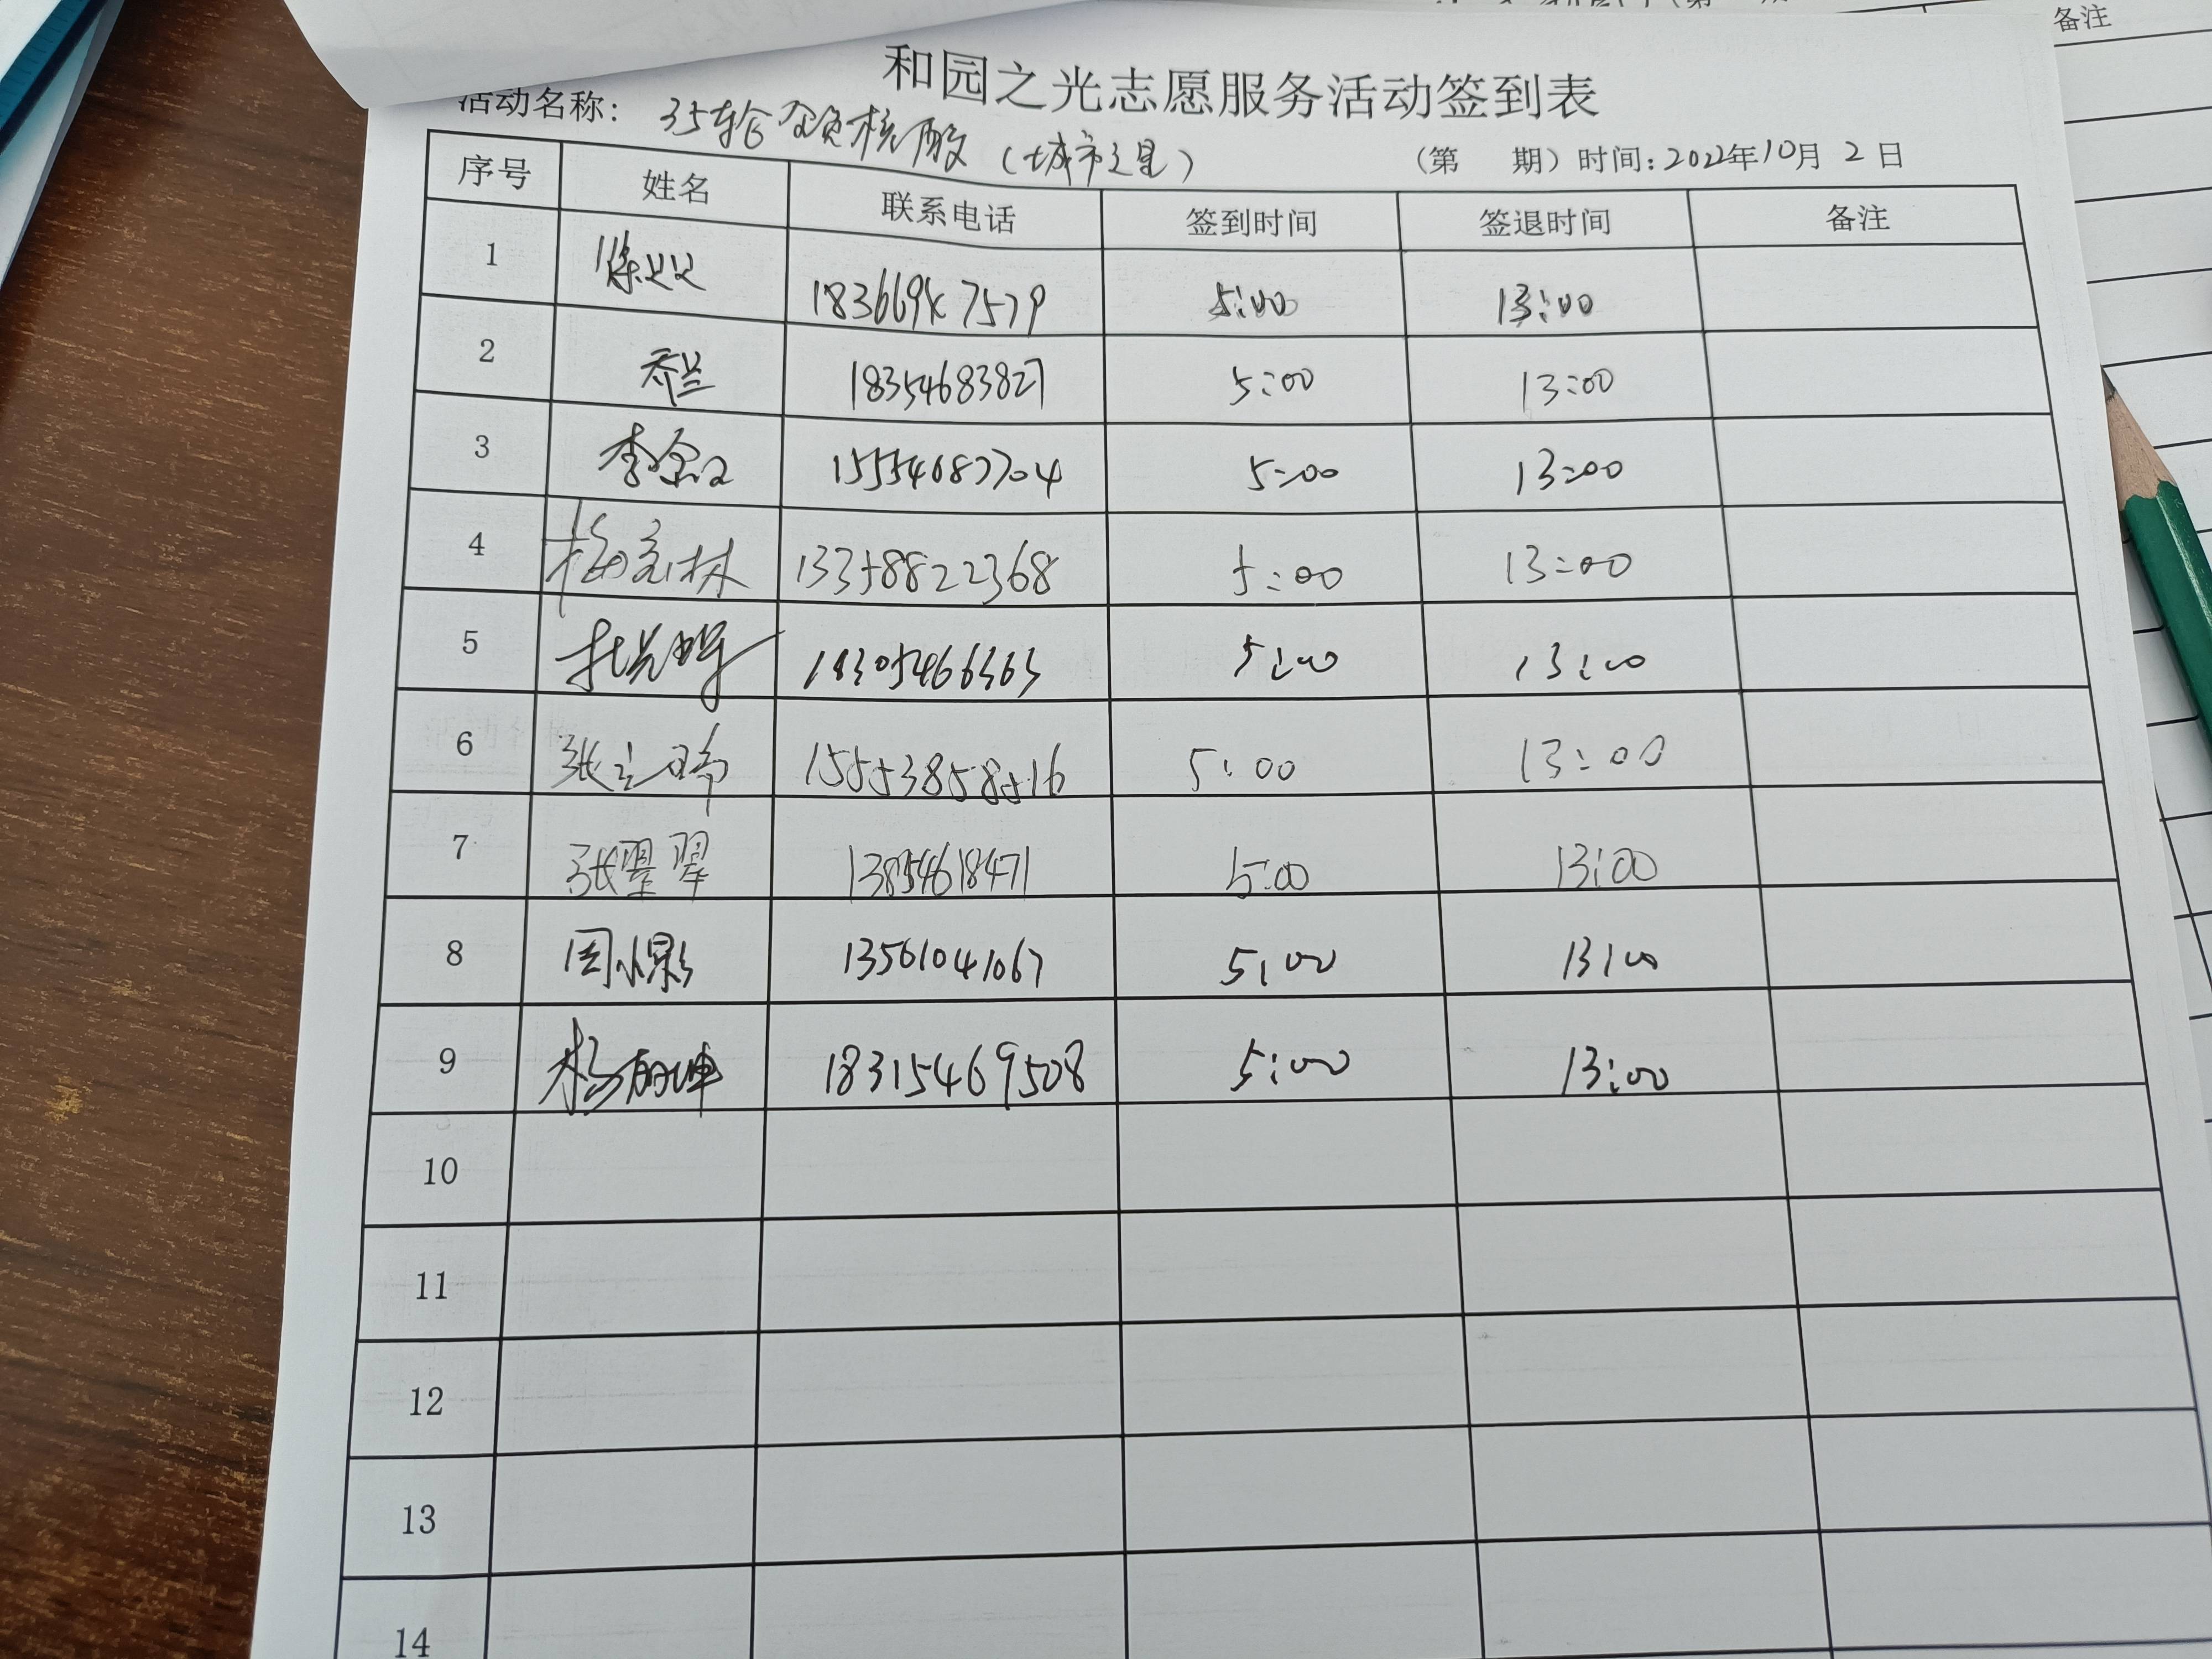 备注
和园之光志愿服务活动签到表
活动名称: 35轮全员核酸(城市之星) (第 期) 时间:2022年10月2日
序号 姓名 联系电话 签到时间 签退时间 备注
1 5:00 13:00
2 乔兰 18354683827 5:00 13:00
3 15554683704 5:00 13:00
4 梅克林 13358822368 5:00 13:00
5 18305466363 5:00 13:00
6 张立晞 15553858516 5:00 13:00
7 张墨翠 13854618471 5:00 13:00
8 周小影 13561041067 5:00 13:00
9 杨丽坤 18315469508 5:00 13:00
10
11
12
13
14